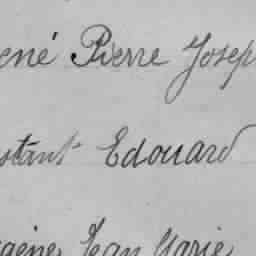 ené Pierre Josep
stant Edouard
gène Jean Marie